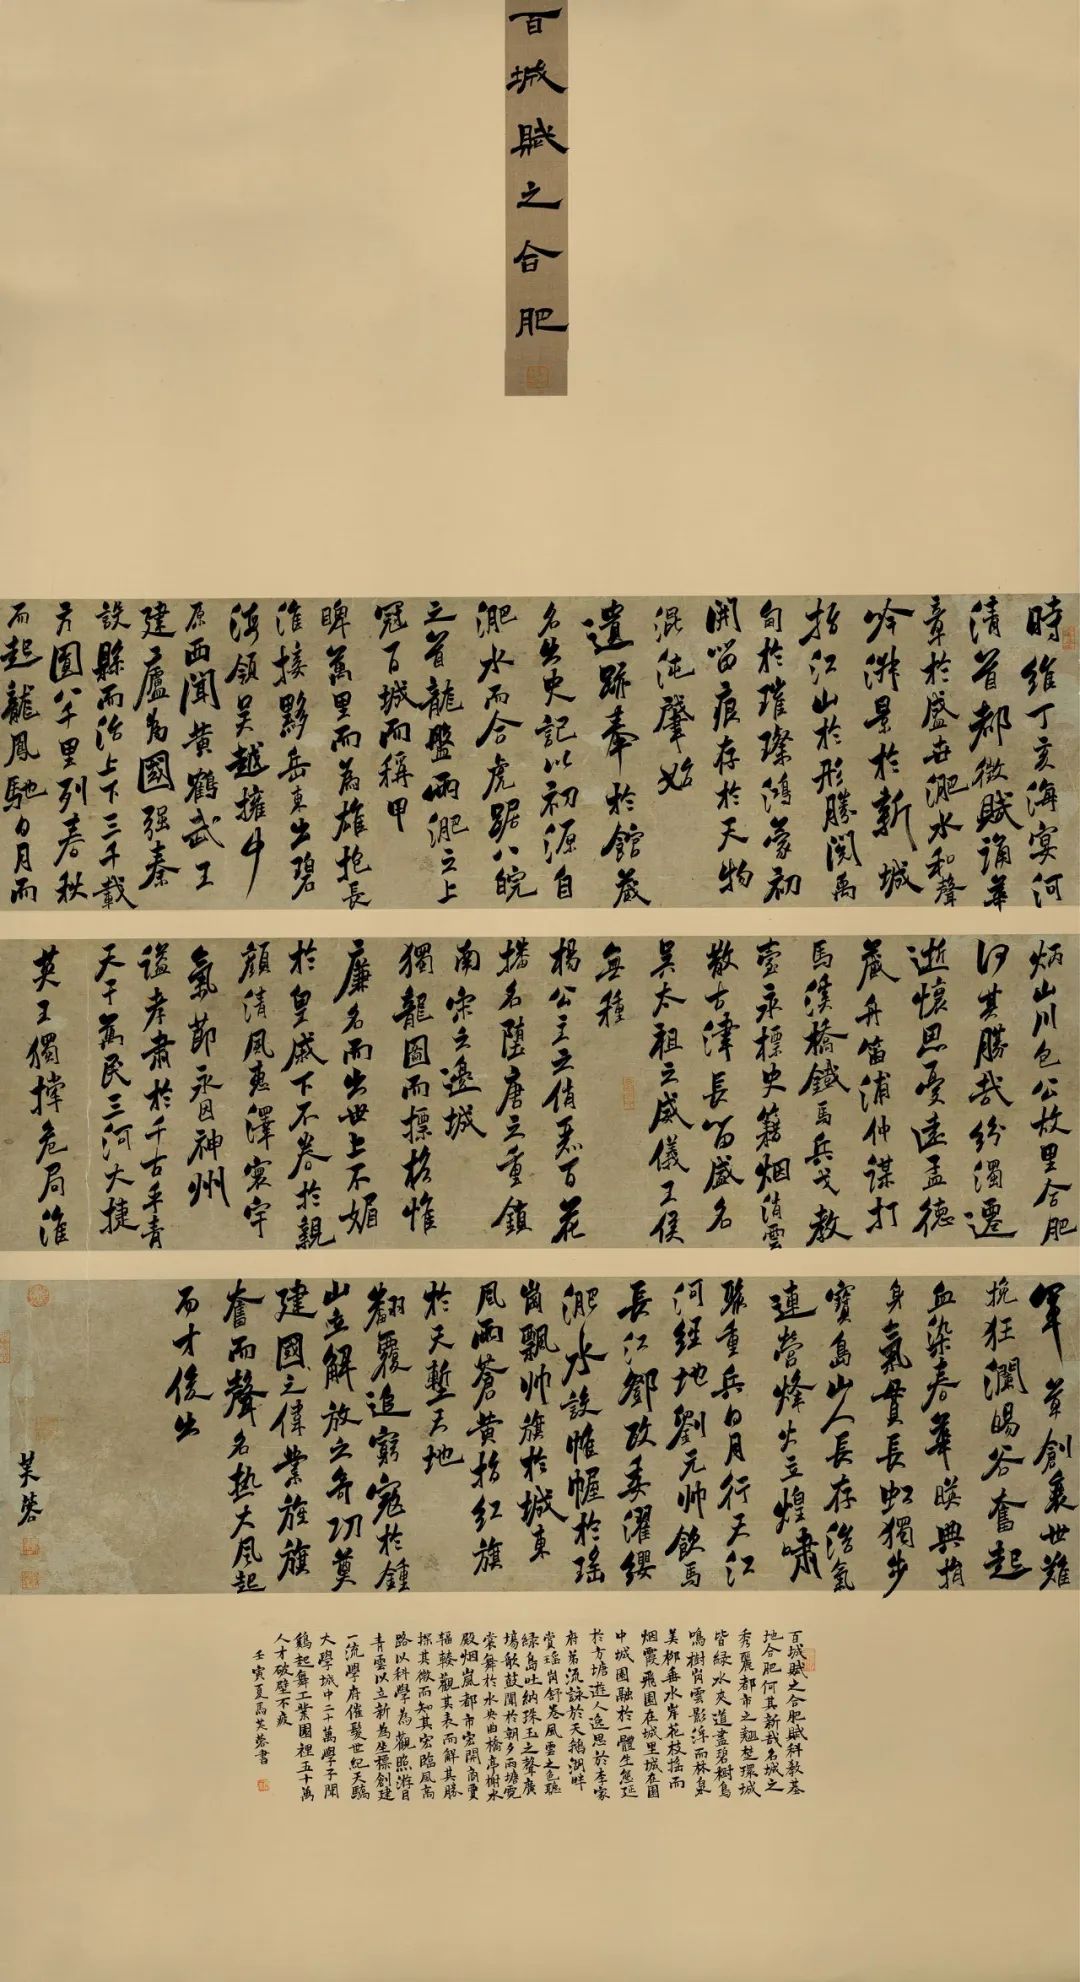 百城賦之合肥
時維丁亥海宴河
清首都徵賦誦華
章於盛世淝水和聲
吟淋景於新城
指江山於形勝閱禹
甸於璀璨鴻蒙初
開留痕存於天物
混沌肇始
遺跡奉於館藏
名出史記以初源自
淝水而合虎踞八皖
之首龍盤兩淝之上
冠百城而稱甲
睥萬里而為雄抱長
淮接黟岳東出碧
海領吴越擁中
原西聞黄鶴武王
建廬為國强秦
設縣而治上下三千載
方圓八千里列春秋
而起龍鳳馳日月而
炳山川包公故里合肥
何其勝哉紛濁遷
逝懷思憂遠孟德
藏舟笛浦仲謀打
馬溪橋鐵馬兵戈教
壹永標史籍烟消雲
散古津長留盛名
吴太祖之威儀王侯
無種
楊公主之俏惡百花
播名隋唐之重鎮
南宋之邊城
獨龍圖而標格惟
廉名而出世上不媚
於皇戚下不眷於親
顔清風惠澤寰宇
氣節永因神州
謚孝肅於千古乎青
天于萬民三河大捷
英王獨撑危局淮
軍草創衰世難
挽狂瀾暘谷奮起
血染春華暎典捐
身氣貫長虹獨步
寶島山人長存浩氣
連營烽火立煌嘯
聚重兵日月行天江
河經地劉元帥飲馬
長江鄧政委濯纓
淝水設帷幄於瑶
崗飄帅旗於城東
風雨蒼黄指红旗
於天塹天地
翻覆追窮寇於鍾
山立解放之奇功奠
建國之偉業旌旗
奮而聲名热大風起
而才俊出
芙蓉
百城賦之合肥賦科教基
地合肥何其新哉名城之
秀麗都市之翹楚環城
皆緑水夹道盡碧樹鳥
鳴樹肖雲影浮而林泉
美柳垂水岸花枝摇而
烟霞飛園在城里城在園
中城園融於一體生態延
於方塘遊人逸思於李家
府第流詠於天鵝湖畔
赏瑶肖舒卷風雲之色聽
緑島吐納珠玉之聲廣
場歌鼓聞於朝夕兩塘霓
棠舞於水央曲橋亭榭水
殿烟嵐都市宏開商賈
輻輳觀其表而解其勝
探其微而知其宏臨風高
路以科學為觀照游目
青雲以立新為坐標創建
一流學府催髮世紀天驕
大學城中二十萬學子聞
鷄起舞工業園裡五十萬
人才破壁不疲
壬寅夏馬芙蓉書